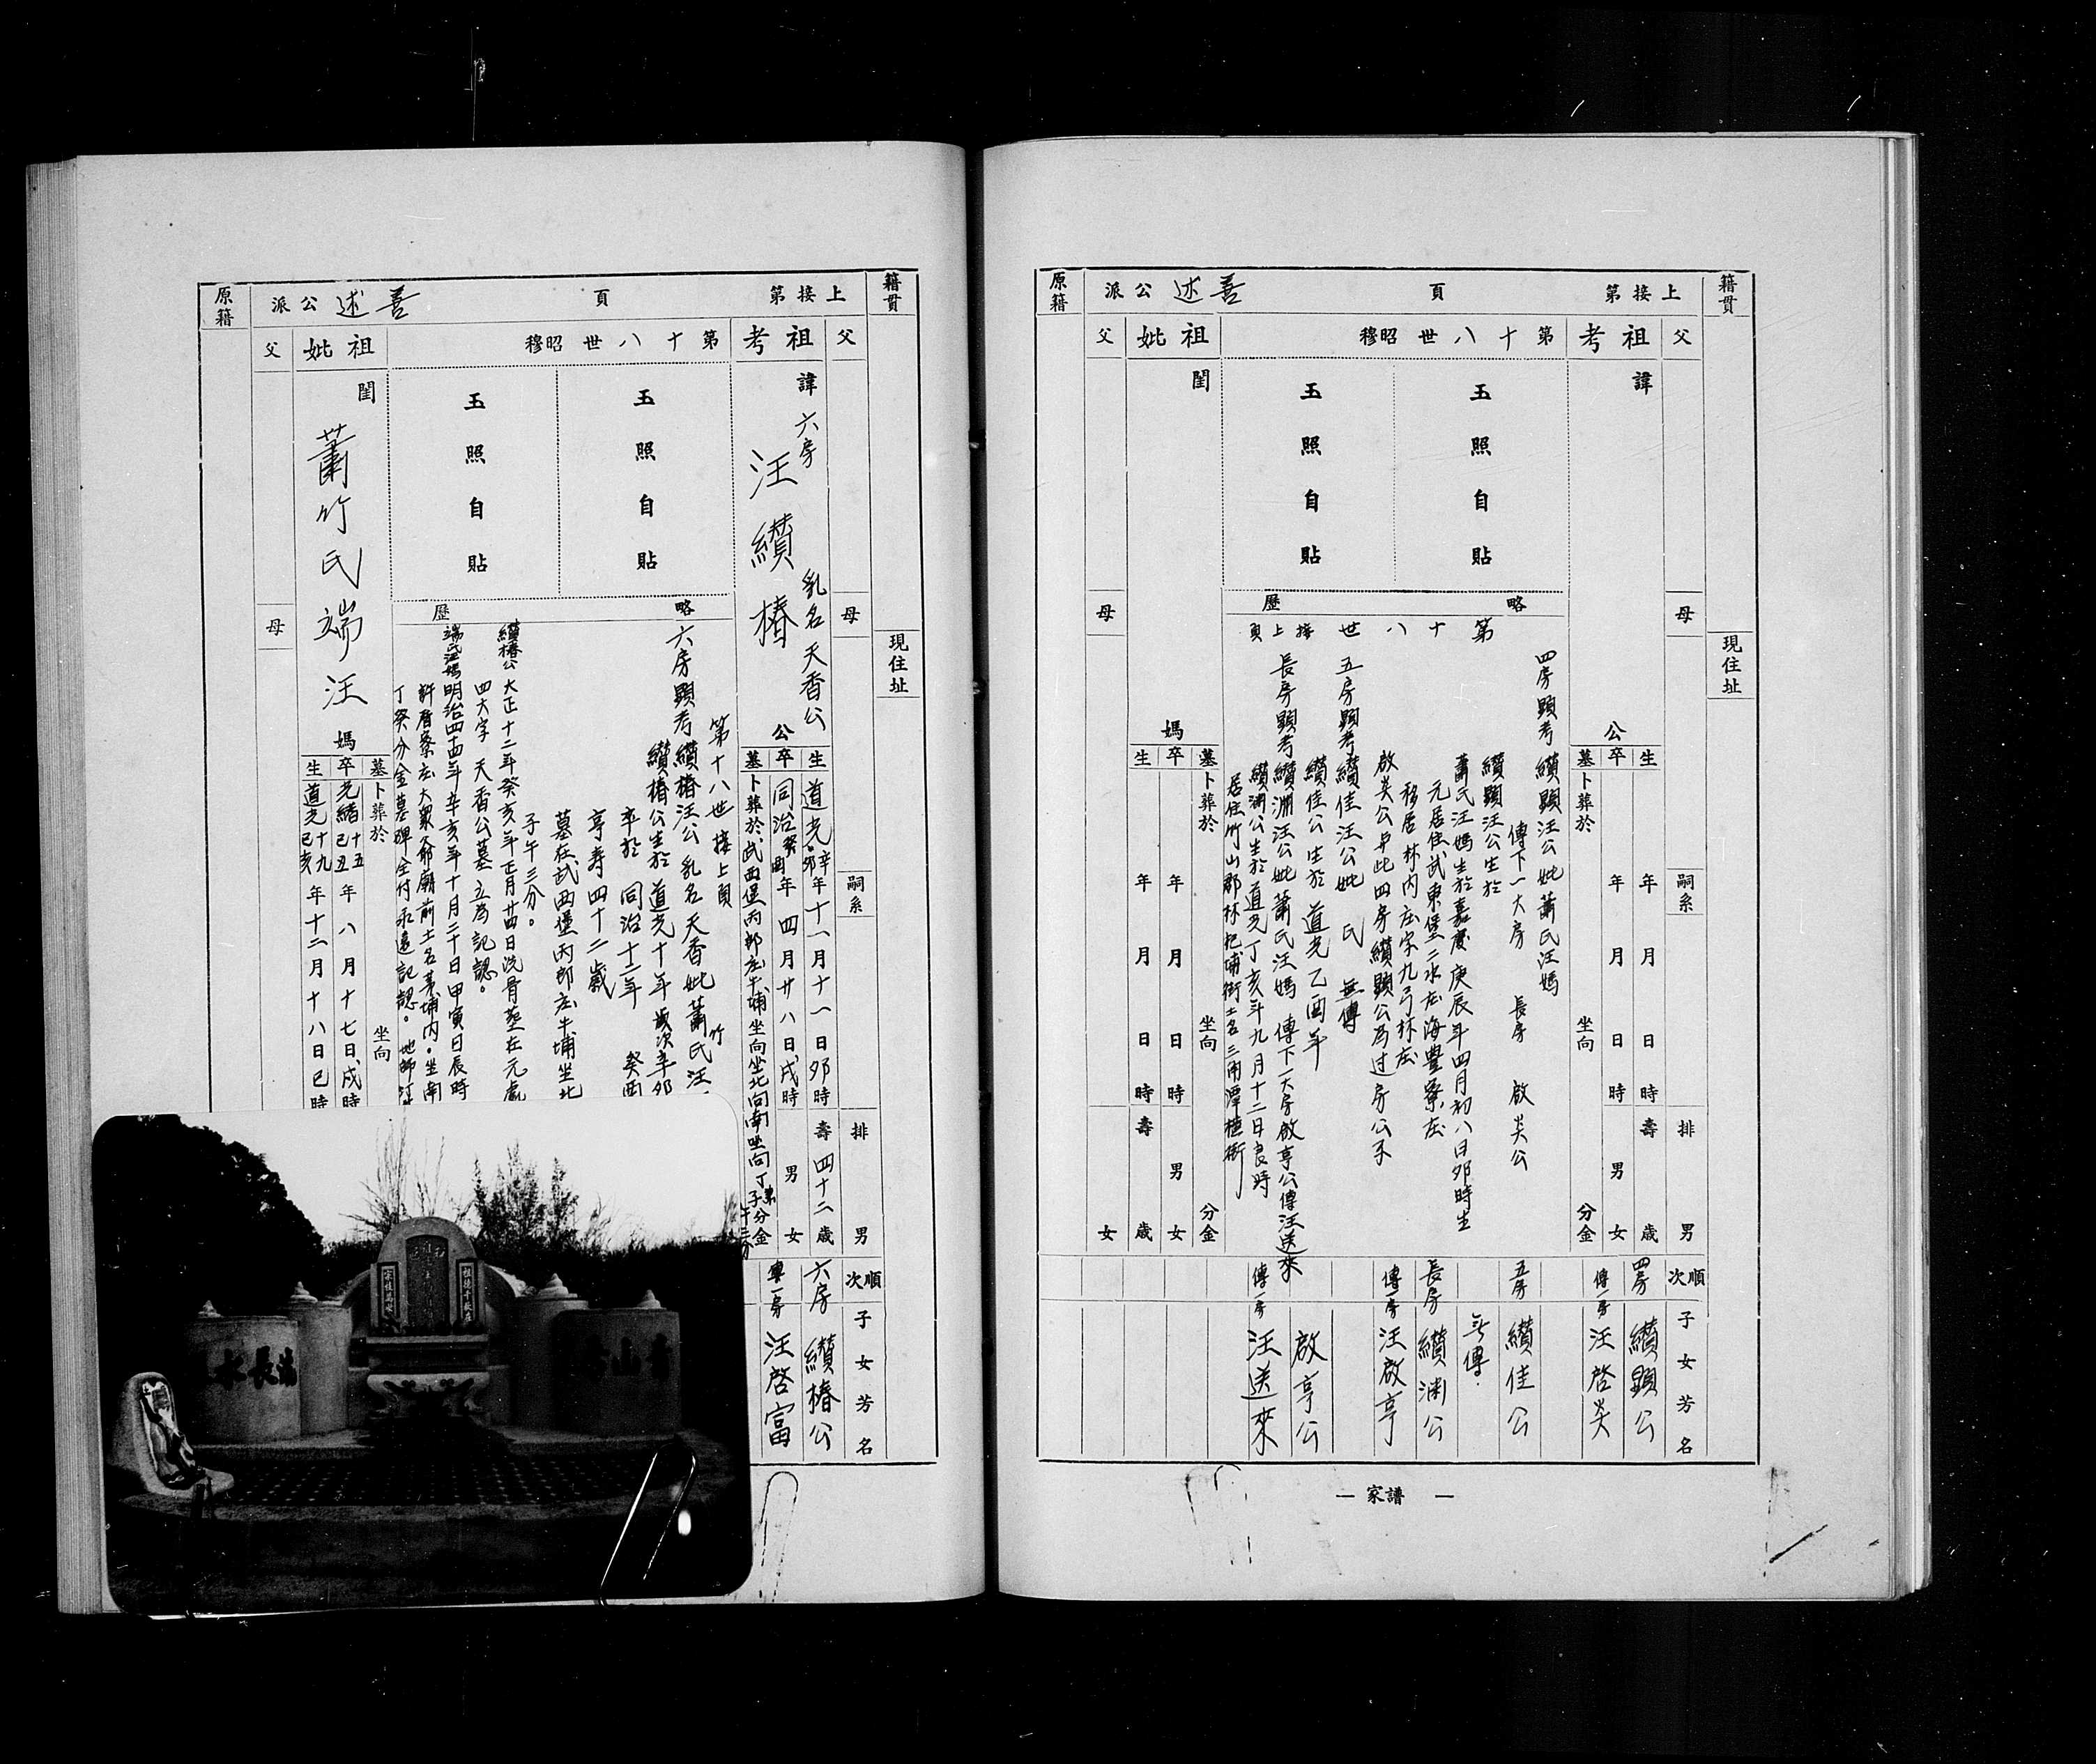 籍貫
現住址
上接第 頁 善述公派
父
母
嗣系
排
男
順次
子女芳名
祖考
諱
公
生 年 月 日 時 壽 歲
卒 年 月 日 時 男 女
墓 卜葬於 坐向 分金
第十八世昭穆
玉照自貼
玉照自貼
略歷
第十八世接上頁
四房顯考 纘顯汪公妣蕭氏汪媽
傳下一大房 長房 啟炎公
纘顯汪公生於
蕭氏汪媽生於嘉慶庚辰年四月初八日卯時生
元居住武東堡二水庄海豐寮庄
移居林內庄宋九弓林庄
啟炎公另此四房纘顯公為过房公子
五房顯考 纘佳汪公妣 氏 無傳
纘佳公生於道光乙酉年
長房顯考 纘淵汪公妣蕭氏汪媽 傳下一大房啟亨公傳汪送來
纘淵公生於道光丁亥年九月十二日良時
居住竹山郡林圯埔街土名三甪潭植街
祖妣
閨
媽
墓 卜葬於 坐向 分金
卒 年 月 日 時 男 女
生 年 月 日 時 壽 歲
父
母
女
原籍
四房 纘顯公
傳一房 汪啓炎
五房 纘佳公
無傳.
長房 纘淵公
傳一房 汪啟亨
啟亨公
傳一房 汪送來
— 家譜 —
籍貫
現住址
上接第 頁 善述公派
父
母
嗣系
排
男
順次
子女芳名
祖考
諱 六房
汪纘椿
乳名天香公
公
生 道光辛卯年十一月十一日卯時 壽四十二歲
卒 同治癸酉年四月廿八日戌時 男 女
墓 卜葬於武西堡丙郡庄牛埔坐向坐北向南坐向丁癸子午三分分金
第十八世昭穆
玉照自貼
玉照自貼
略歷
第十八世接上頁
六房顯考纘椿汪公乳名天香妣蕭竹氏汪
纘椿公生於道光十年歲次辛卯
卒於 同治十二年 癸酉
享寿四十二歲
墓在武西堡丙郡庄牛埔坐北
子午三分。
纘椿公 大正十二年癸亥年正月廿四日洗骨葬在元處
四大字 天香公墓 立為記認。
端氏汪媽 明治四十四年辛亥年十月二十日甲寅日辰時
許厝寮庄大眾爺廟前土名茅埔內。坐南
丁癸分金墓碑全付永遠記認。 地師
祖妣
閨
蕭竹氏端汪
媽
墓 卜葬於 坐向
卒 光緒十五己丑年八月十七日戌時
生 道光十九己亥年十二月十八日巳時
父
母
原籍
六房 纘椿公
傳一房 汪啓富